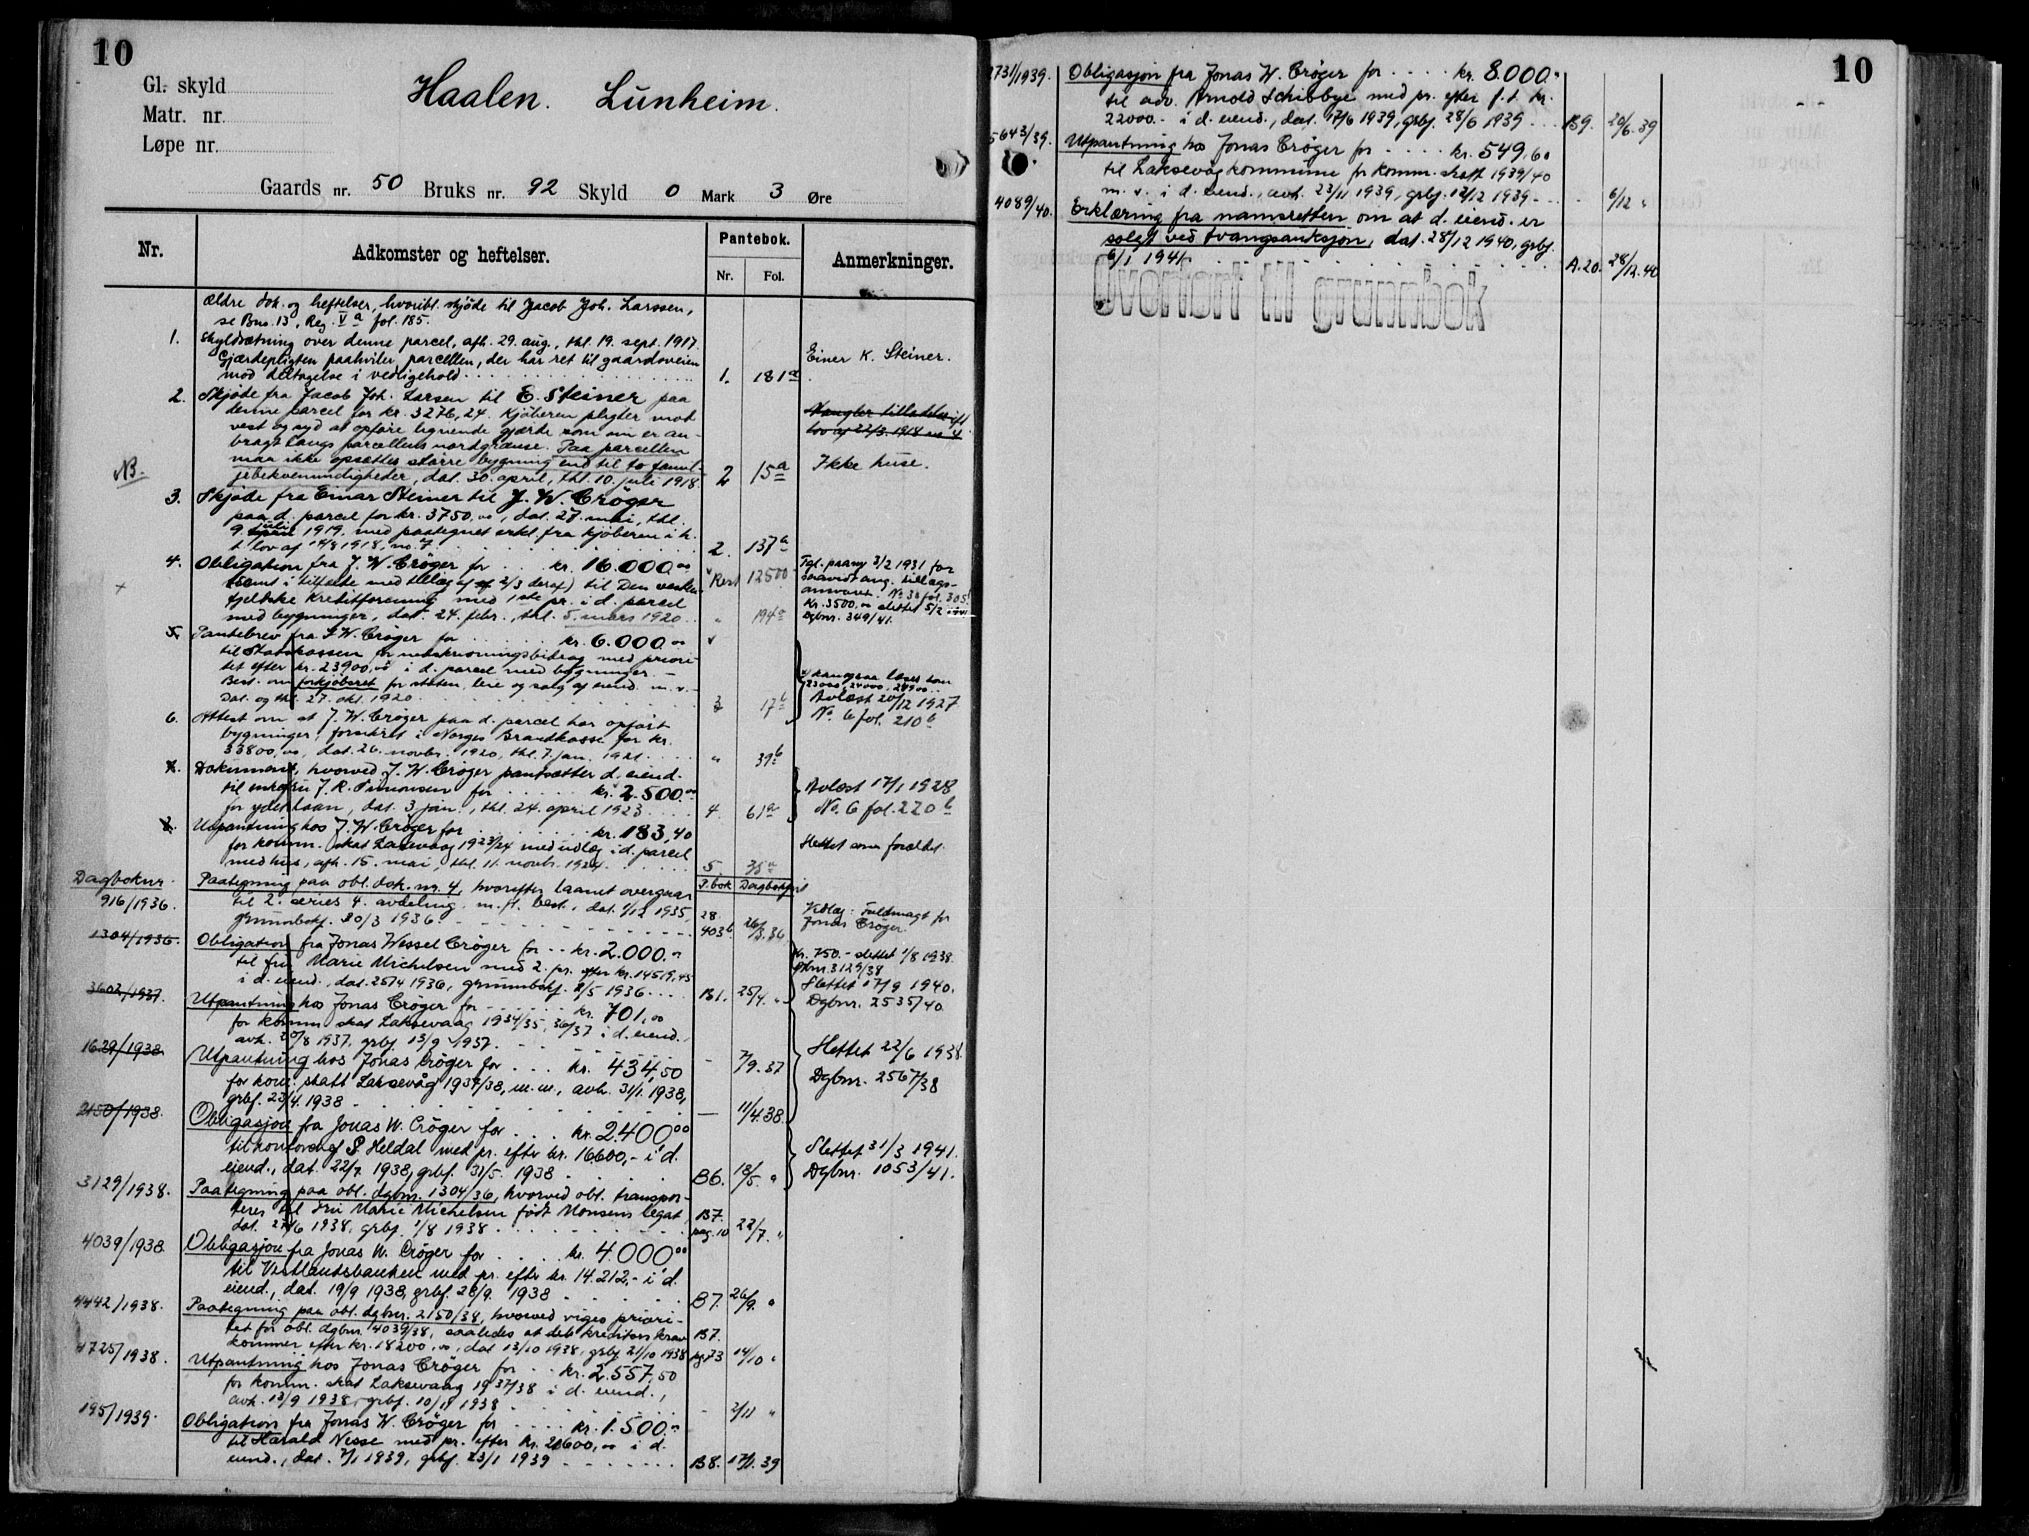 10
Gl. skyld
Matr. nr.
Løpe nr.
Haalen. Lunheim.
Gaards nr. 50 Bruks nr. 92 Skyld 0 Mark 3 Øre
Nr.
Adkomster og heftelser.
Pantebok.
Nr. Fol.
Anmerkninger.
ældre dok. og heftelser, hvoribl. skjøde til Jacob Joh. Larssen,
se Bno. 13, Reg. V a fol. 185.
1. Skyldsætning over denne parcel, afh. 29. aug., thl. 19. sept. 1917.
Gjærdepligten paahviler parcellen, der har ret til gaardsveien
mod deltagelse i vedligehold 1. 181a
Einer K. Steiner.
2. Skjøde fra Jacob Joh. Larsen til E. Steiner paa
denne parcel for kr. 3276,24. Kjøberen pligter mod
vest og syd at opføre lignende gjærde som nu er an-
bragt langs parcellens nordgrænse. Paa parcellen
maa ikke opsættes større bygning end til to famil-
jebekvemmeligheder, dat. 30. april, thl. 10. juli 1918. 2 15a
Mangler tilladelse ifl.
lov af 22/3. 1918 no 4
Ikke huse.
NB.
3. Skjøde fra Einar Steiner til J. W. Crøger
paa d. parcel for kr. 3750,00, dat. 27. mai, thl.
9. juli 1919, med paategnet erkl. fra kjøberen i h.
t. lov af 14/8 1918, no. 7 2. 137a
4. Obligation fra J. W. Crøger for kr. 16.000,00
(samt i tilfælde med tillæg af 2/3 deraf) til Den vesten-
fjeldske Kreditforening med 1ste pr. i d. parcel
med bygninger, dat. 24. febr., thl. 5. mars 1920 " 194a
Rest 12500
Tgl. paany 3/2 1931 for
saavidt ang. tillægs-
ansvaret. No 30 fol. 305
Kr. 3500,00 slettet 5/2
Dgbnr. 349/41.
5. Pantebrev fra J. W. Crøger for kr. 6.000,00
til Statskassen for nedskrivningsbidrag med priori-
tet efter kr. 23900,00 i d. parcel med bygninger.
Best. om forkjøbsret for staten, leie og salg af eiend. m. v.
Dat. og thl. 27. okt. 1920. 3 17b
Avlæst 20/12 1927
No. 6 fol. 210b
6. Attest om at J. W. Crøger paa d. parcel har opført
bygninger, forsikret i Norges Brandkasse for kr.
33800,00, dat. 26. novbr. 1920, thl. 7. jan. 1921. " 39b
7. Dokument, hvorved J. W. Crøger pantsætter d. eiend.
til enkefru J. R. Simonsen for kr. 2.500,00
for ydet laan, dat. 3 jan., thl. 24. april 1923 4. 61a
Avlæst 17/1 1928
No. 6 fol. 220b
8. Utpantning hos J. W. Crøger for kr. 183,40
for komm. skat Laksevaag 1923/24 med utlæg i d. parcel
med hus, afh. 15. mai, thl. 11. novbr. 1924 5. 35a
Slettet som forældet.
Dagboknr. P.bok Dagbokført
916/1936. Paategning paa obl. dok. nr. 4, hvorefter laanet overgaar
til 2. series 4. avdeling m. fl. best., dat. 1/12 1935,
grunnbokf. 30/3 1936 28 403b. 26/3.36
Vedlag: Fuldmagt for
Jonas Crøger.
1304/1936. Obligation fra Jonas Wessel Crøger for kr. 2.000,00
til fru Marie Michelsen med 2. pr. efter kr. 14519,45
i d. eiend., dat. 25/4 1936, grunnbokf. 2/5 1936 B1. 25/4. "
Kr. 750.- slettet 1/8 1938.
Dgbnr. 3129/38
Slettet 17/9 1940.
Dgbnr. 2535/40
3602/1937. Utpantning hos Jonas Crøger for kr. 701,00
for komm. skat Laksevaag 1934/35, 36/37 i d. eiend.,
avh. 20/8 1937, grbf. 13/9 1937. - 7/9.37
1629/1938. Utpantning hos Jonas Crøger for kr. 434,50
for kom. skatt Laksevåg 1937/38, m.m., avh. 31/1. 1938,
grbf. 23/4. 1938 - 11/4.38.
Slettet 22/6 1938.
Dgbnr. 2567/38
2150/1938. Obligasjon fra Jonas W. Crøger for kr. 2.400,00
til kontorchef S. Heldal med pr. efter kr. 16600,- i d.
eiend., dat. 22/4 1938, grbf. 31/5. 1938 B6. 18/5. "
Slettet 31/3 1941.
Dgbnr. 1053/41.
3129/1938. Paategning paa obl. dgbnr. 1304/36, hvorved obl. transpor-
teres til Fru Marie Michelsen født Monsens legat,
dat. 27/6 1938, grbf. 1/8 1938 B7. pag. 10 22/7. "
4039/1938. Obligasjon fra Jonas W. Crøger for kr. 4.000,00
til Vestlandsbanken med pr. efter kr. 14.212,- i d.
eiend., dat. 19/9 1938, grbf. 28/9. 1938 B7. 26/9. "
4442/1938. Paategning paa obl. dgbnr. 2150/38, hvorved viges priori-
tet for obl. dgbnr. 4039/38, saaledes at dets kreditors krav
kommer efter kr. 18200,00, dat 13/10 1938, grbf. 21/10 1938 B7. pag. 73 14/10 "
4725/1938. Utpantning hos Jonas Crøger for kr. 2.557,50
for komm. skat Laksevaag 1937/38 i d. eiend.,
avh. 13/9 1938, grbf. 10/11 1938 - 2/11 "
195/1939. Obligation fra Jonas W. Crøger for kr. 1.500,00
til Harald Nesse med pr. efter kr. 20600,00 i d.
eiend., dat. 7/1 1939, grbf. 23/1 1939 B8. 17/1. 39
10
2731/1939. Obligasjon fra Jonas W. Crøger for kr. 8.000,00
til adv. Arnold Schibbye med pr. efter f. t. kr.
22000.- i d. eiend., dat. 17/6 1939, grbf. 28/6 1939 B9. 20/6.39
5643/39. Utpantning hos Jonas Crøger for kr. 549,60
til Laksevåg kommune for komm. skatt 1939/40
m. v. i d. eiend., avh. 23/11 1939, grbf. 12/12 1939 - 6/12 "
4089/40. Erklæring fra namsretten om at d. eiend. er
solgt ved tvangsauksjon, dat. 28/12 1940, grbf.
6/1 1941 A.20. 28/12.40
Overført til grunnbok